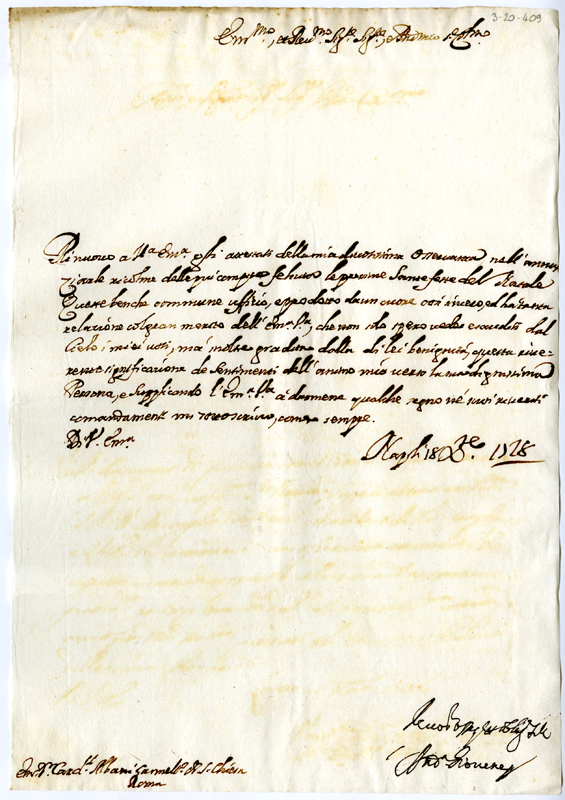 3-20-409
Em.mo, et Rev.mo Sig.re Sig.re, e Pron̄e Col.mo
Rinuovo a V.ra Em.a gli attestati della mia divotissima Osservanza nell'annun
ziarle ricolme delle più compite felicità le prossime Sante feste del Natale
Questo benche commune uffizio, è prodotto da un cuore così sincero, ed ha tanta
relazione col gran merito dell'Em.a V.ra, che non solo spero veder esauditi dal
Cielo i miei voti, mà inoltre gradita dalla di lei benignità questa rive-
rente significazione de sentimenti dell'animo mio verso la sua degnissima
Persona, e supplicando l'Em.a V.ra à darmene qualche segno ne suoi riveriti
comandamenti mi sottoscrivo, come sempre.
Di V. Em.a
Napoli 18 Xbre. 1728
Em. S.r Card.l Albani Camerl.o di S. Chiesa
Roma